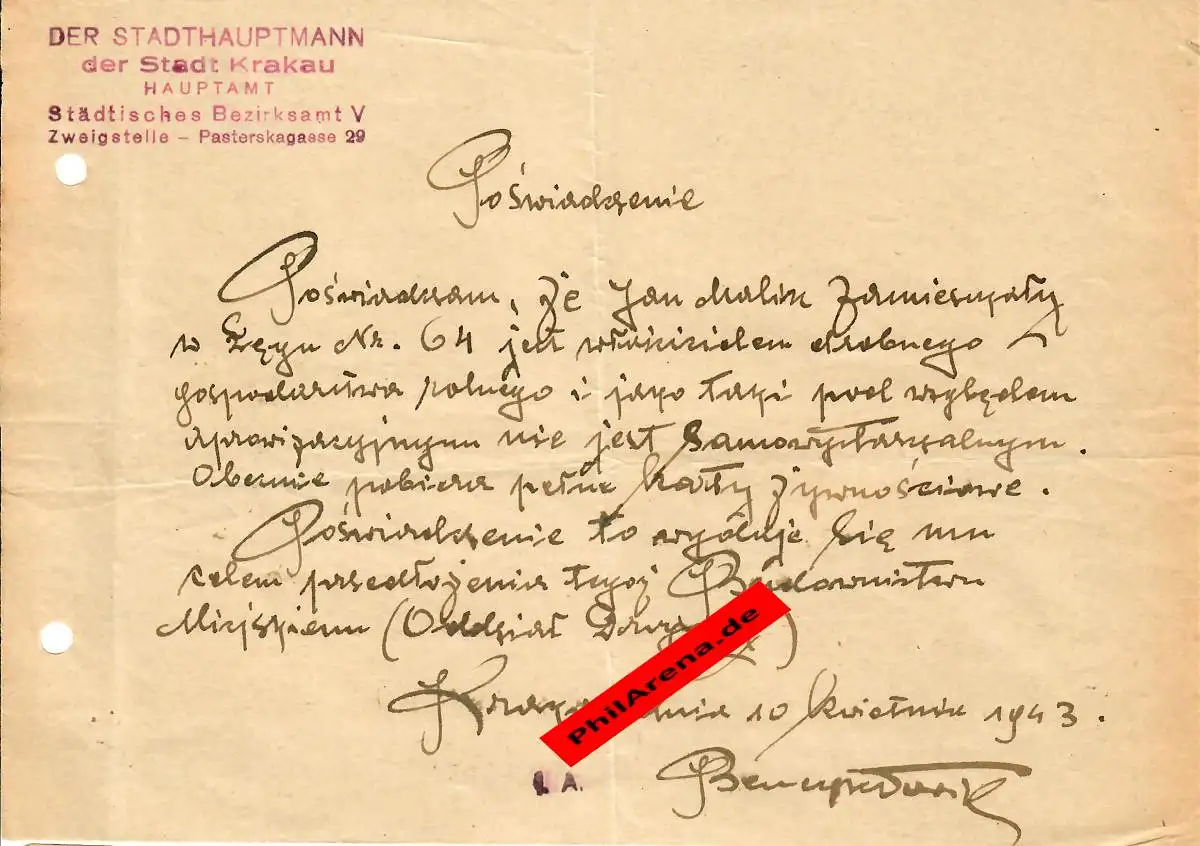 DER STADTHAUPTMANN
der Stadt Krakau
HAUPTAMT
Städtisches Bezirksamt V
Zweigstelle – Pasterskagasse 29
Poświadczenie
Poświadczam, że Jan Malik zamieszkały
w Łęgu Nr. 64 jest właścicielem drobnego
gospodarstwa rolnego i jako taki pod względem
aprowizacyjnym nie jest samowystarczalnym.
Obecnie pobiera pełne karty żywnościowe.
Poświadczenie to wydaje się mu
celem przedłożenia tegoż Budownictwu
Miejskiemu (Oddział
dnia 10 kwietnia 1943.
PhilArena.de
I. A.